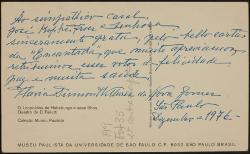 Ao simpático casal,
José Refrére e Senhora
sinceramente grato, pelo bello cartão
da "Encantada", que muito apreciamos,
retribuimos seus votos de felicidade
paz e muita saúde.
Maria Villares da Nova Gomes
São Paulo
Dezembro - 1976 -
D. Leopoldina de Habsburgo e seus filhos
Quadro de D. Failutti
Coleção Museu Paulista
MUSEU PAULISTA DA UNIVERSIDADE DE SÃO PAULO C.P. 8032 SÃO PAULO BRASIL